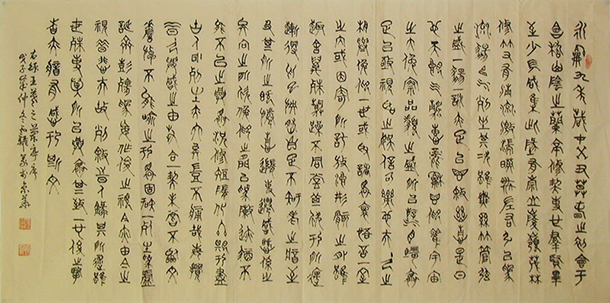 永和九年歲在癸丑暮春之初會于
會稽山陰之蘭亭修禊事也群賢畢
至少長咸集此地有崇山峻領茂林
修竹又有清流激湍暎帶左右引以為
流觴曲水列坐其次雖無絲竹管弦
之盛一觴一詠亦足以暢敘幽情是日
也天朗氣清惠風和暢仰觀宇宙
之大俯察品類之盛所以遊目騁懷
足以極視聽之娛信可樂也夫人之
相與俯仰一世或取諸懷抱悟言一室
之內或因寄所託放浪形骸之外雖
趣舍萬殊靜躁不同當其欣於所遇
暫得於己快然自足不知老之將至
及其所之既惓情隨事遷感慨係之
矣向之所欣俛仰之間以為陳跡猶不
能不以之興懷況修短隨化終期於盡
古人云死生亦大矣豈不痛哉每攬
昔人興感之由若合一契未嘗不臨文
嗟悼不能喻之於懷固知一死生為虛
誕齊彭殤為妄作後之視今亦由今之
視昔悲夫故列敘時人錄其所述雖
世殊事異所以興懷其致一也後之攬
者亦將有感於斯文
右錄王羲之蘭亭序
戊子年仲冬